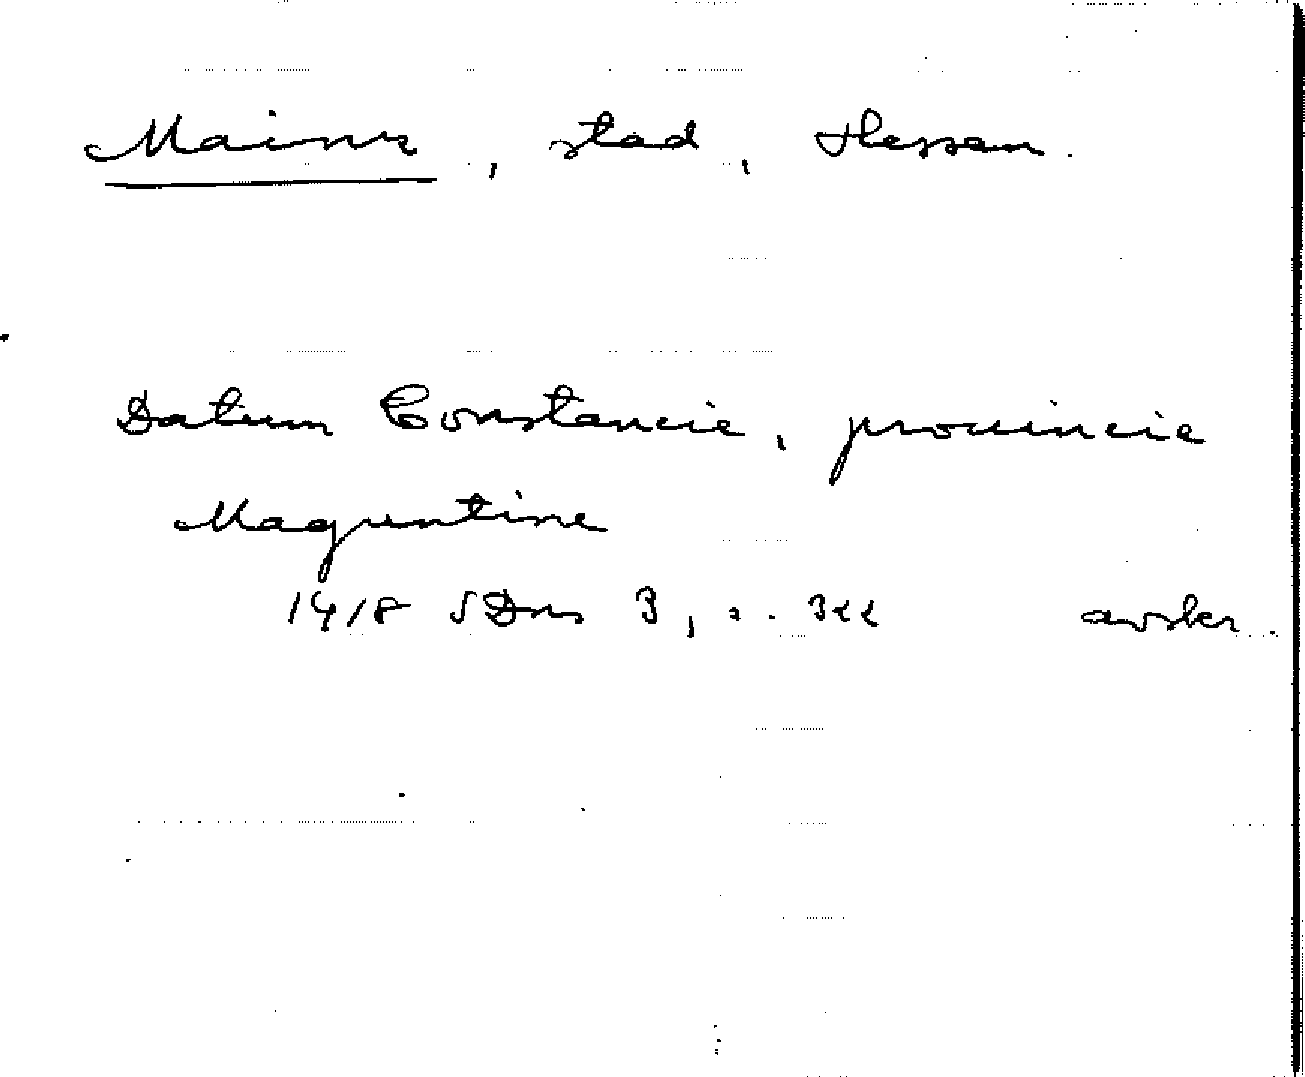 Mainz, stad, Hessen.
Datum Constancie, prouincie
Maguntine
1418 SDns 3, s. 322 avskr.